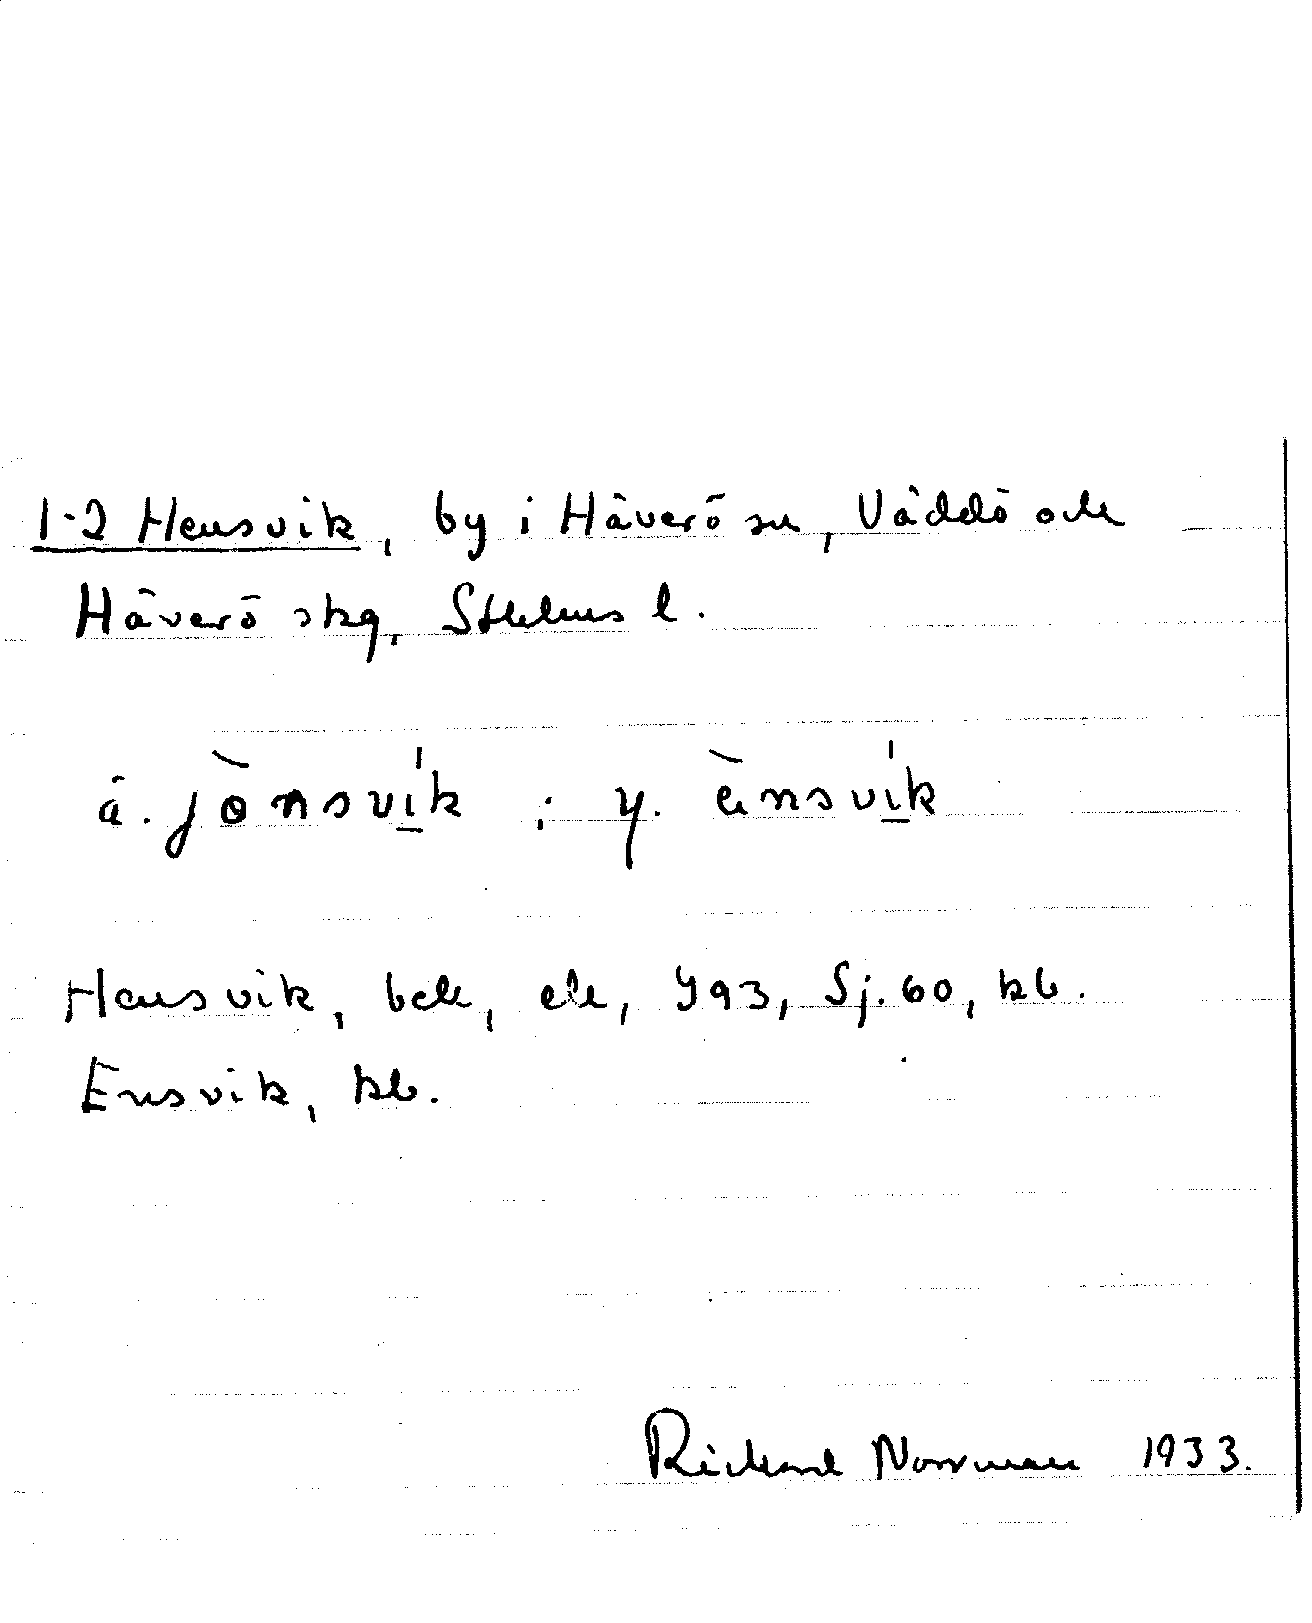 1-2 Hensvik, by i Häverö sn, Väddö och
Häverö skg, Sthlms l.
ä. jònsvi̲k ; y. ä̀nsvi̲k
Hensvik, bek, ek, J93, Sj. 60, kb.
Ensvik, kb.
Rickard Norrman 1933.